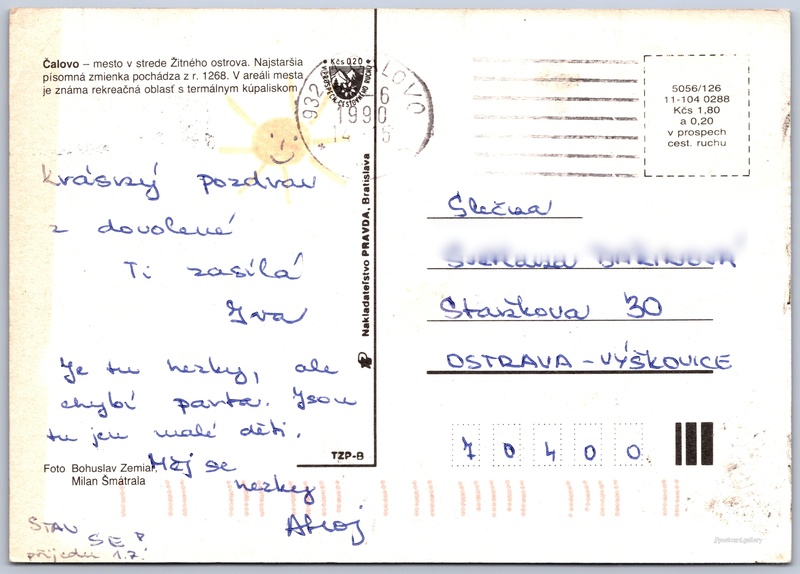 Čalovo – mesto v strede Žitného ostrova. Najstaršia
písomná zmienka pochádza z r. 1268. V areáli mesta
je známa rekreačná oblasť s termálnym kúpaliskom
Krásný pozdrav
z dovolené
Ti zasílá
Iva
Je tu hezky, ale
chybí parta. Jsou
tu jen malé děti.
Měj se
hezky
Ahoj
Foto Bohuslav Zemian
Milan Šmátrala
STAV SE
přijedu 1.7.
TZP-B
Nakladateľstvo PRAVDA, Bratislava
932
LOVO
Kčs 0,20
V PROSPECH CESTOVNÉHO RUCHU
1990
5056/126
11-104 0288
Kčs 1,80
a 0,20
v prospech
cest. ruchu
Slečna
30
OSTRAVA – VÝŠKOVICE
7 0 4 0 0